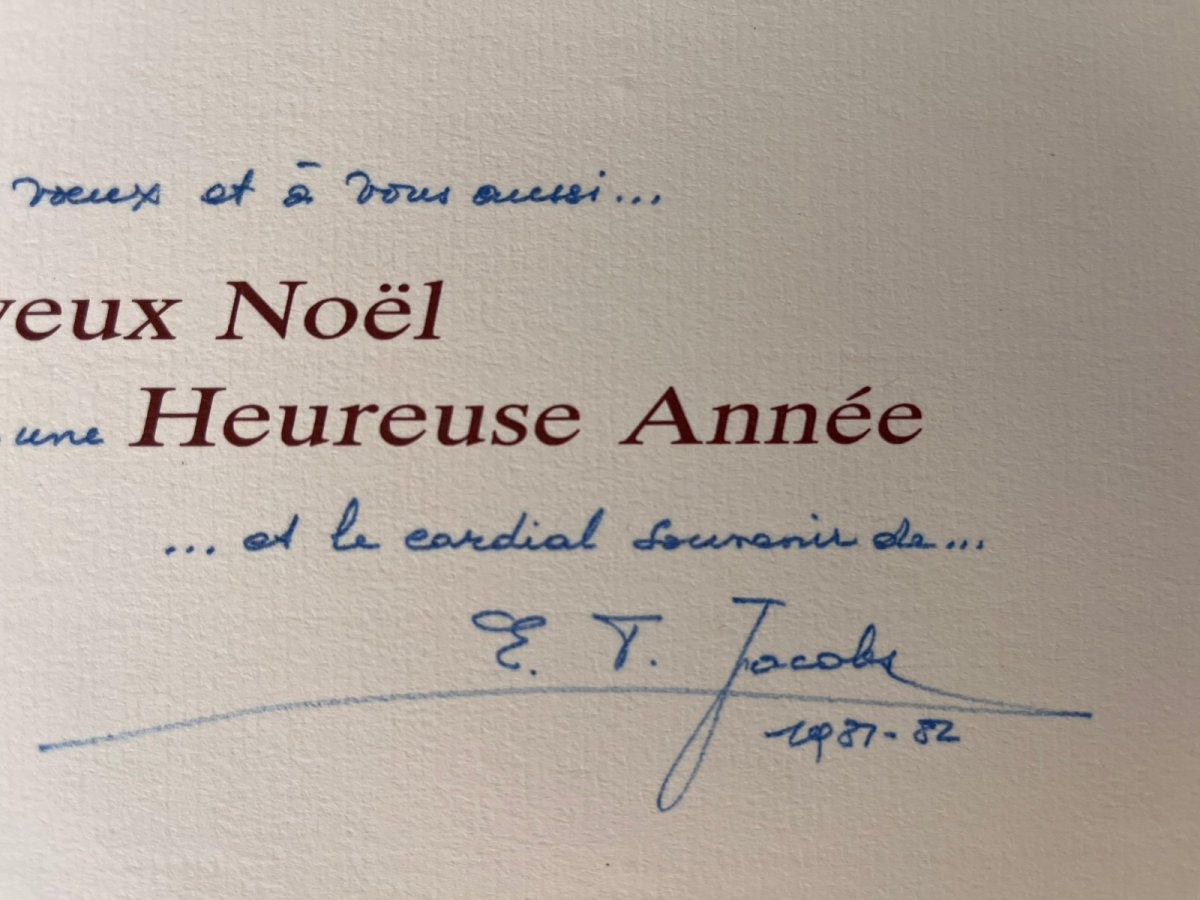 vœux et à vous aussi...
yeux Noël
une Heureuse Année
... et le cordial souvenir de...
E. T. Jacobs
1981-82